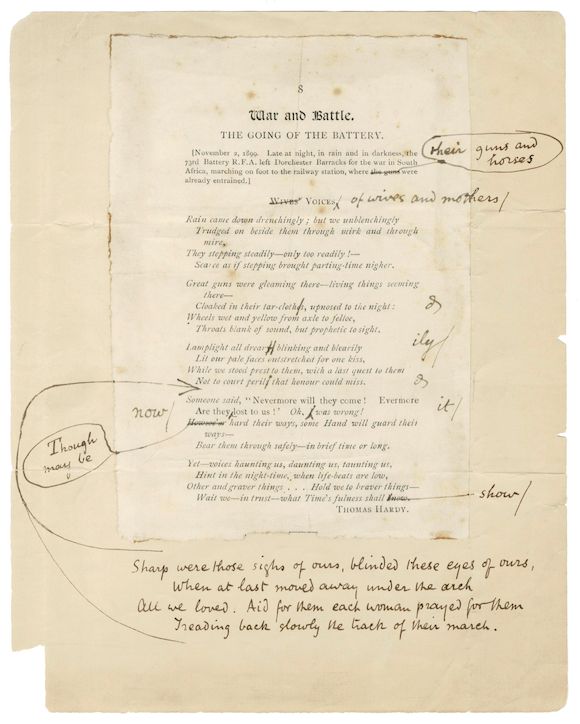 8
War and Battle.
THE GOING OF THE BATTERY.
[November 2, 1899. Late at night, in rain and in darkness, the
73rd Battery R.F.A. left Dorchester Barracks for the war in South
Africa, marching on foot to the railway station, where the guns were
already entrained.]
their guns and
horses
WIVES' VOICES, of wives and mothers/
Rain came down drenchingly; but we unblenchingly
Trudged on beside them through mirk and through
mire,
They stepping steadily—only too readily!—
Scarce as if stepping brought parting-time nigher.
Great guns were gleaming there—living things seeming
there—
Cloaked in their tar-cloths, upnosed to the night:
Wheels wet and yellow from axle to felloe,
Throats blank of sound, but prophetic to sight.
Lamplight all drear blinking and blearily
ily/
Lit our pale faces outstretched for one kiss,
While we stood prest to them, with a last quest to them
Not to court peril that honour could miss.
Someone said, "Nevermore will they come! Evermore
it/
now/
Are they lost to us!" Oh, was wrong!
Though
may be
Howsoe'er hard their ways, some Hand will guard their
ways—
Bear them through safely—in brief time or long.
Yet—voices haunting us, daunting us, taunting us,
Hint in the night-time, when life-beats are low,
Other and graver things . . . Hold we to braver things—
Wait we—in trust—what Time's fulness shall know.
show/
THOMAS HARDY.
Sharp were those sighs of ours, blinded these eyes of ours,
When at last moved away under the arch
All we loved. Aid for them each woman prayed for them
Treading back slowly the track of their march.